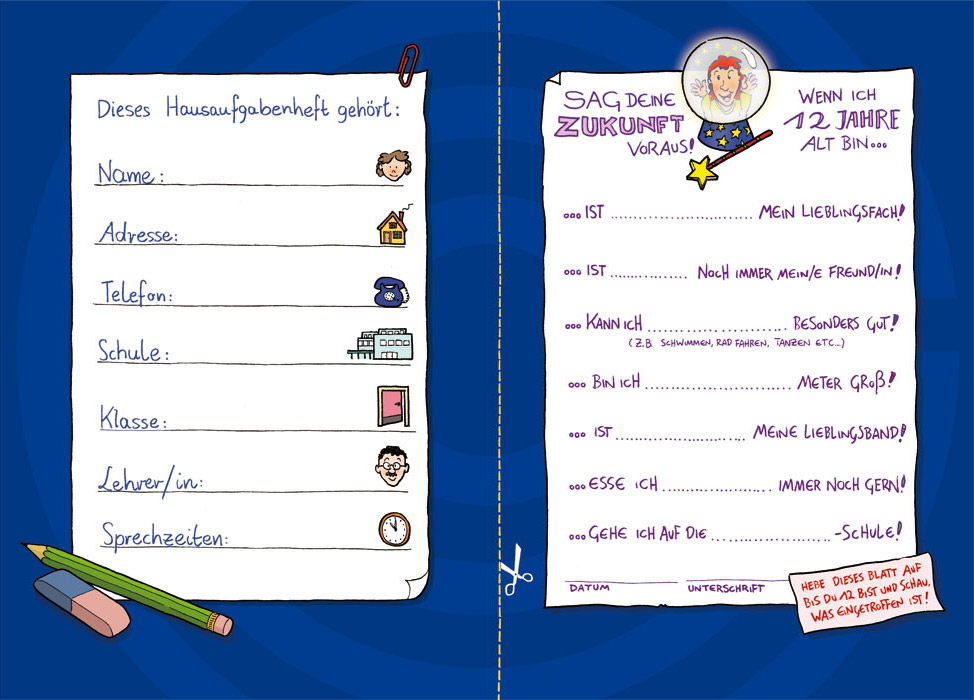 Dieses Hausaufgabenheft gehört:
Name:
Adresse:
Telefon:
Schule:
Klasse:
Lehrer/in:
Sprechzeiten:
SAG DEINE
ZUKUNFT
VORAUS!
WENN ICH
12 JAHRE
ALT BIN...
...IST ........................ MEIN LIEBLINGSFACH!
...IST ............... NOCH IMMER MEIN/E FREUND/IN!
...KANN ICH ........................ BESONDERS GUT!
(Z.B SCHWIMMEN, RAD FAHREN, TANZEN ETC...)
...BIN ICH ......................... METER GROß!
...IST ...................... MEINE LIEBLINGSBAND!
...ESSE ICH .................. IMMER NOCH GERN!
...GEHE ICH AUF DIE .................... -SCHULE!
DATUM UNTERSCHRIFT
HEBE DIESES BLATT AUF
BIS DU 12 BIST UND SCHAU,
WAS EINGETROFFEN IST!